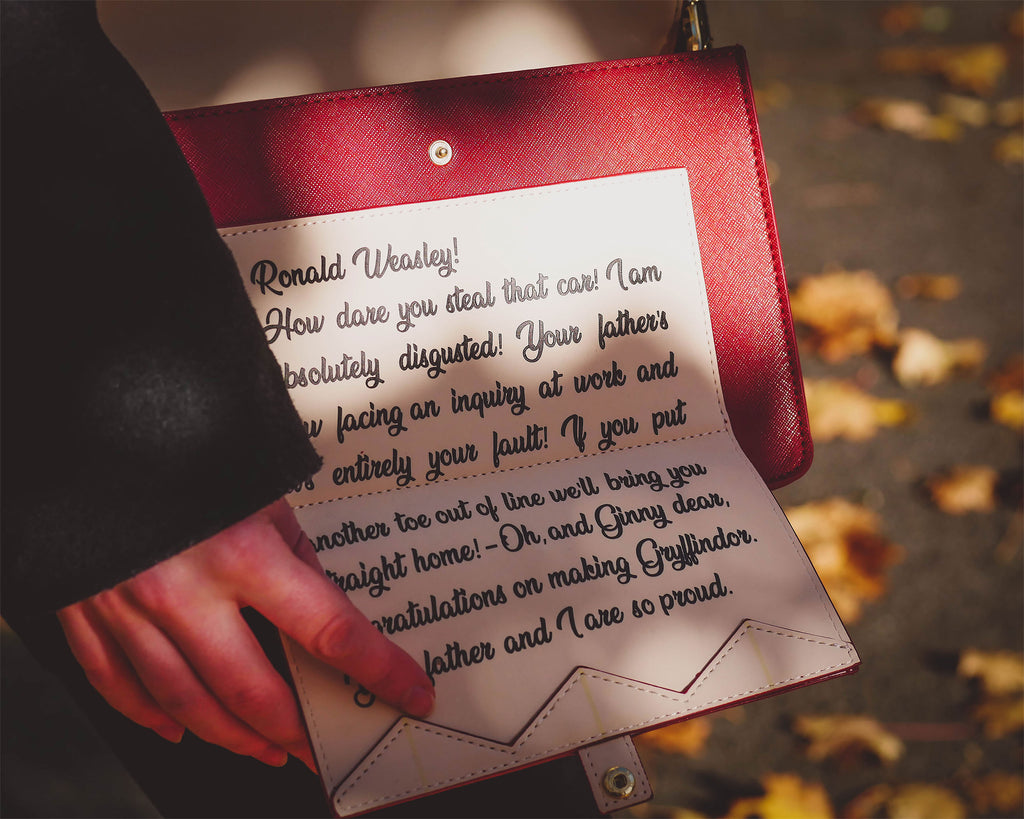 Ronald Weasley!
How dare you steal that car! I am
bsolutely disgusted! Your father's
w facing an inquiry at work and
s entirely your fault! If you put
nother toe out of line we'll bring you
raight home!-Oh, and Ginny dear,
ratulations on making Gryffindor.
father and I are so proud.